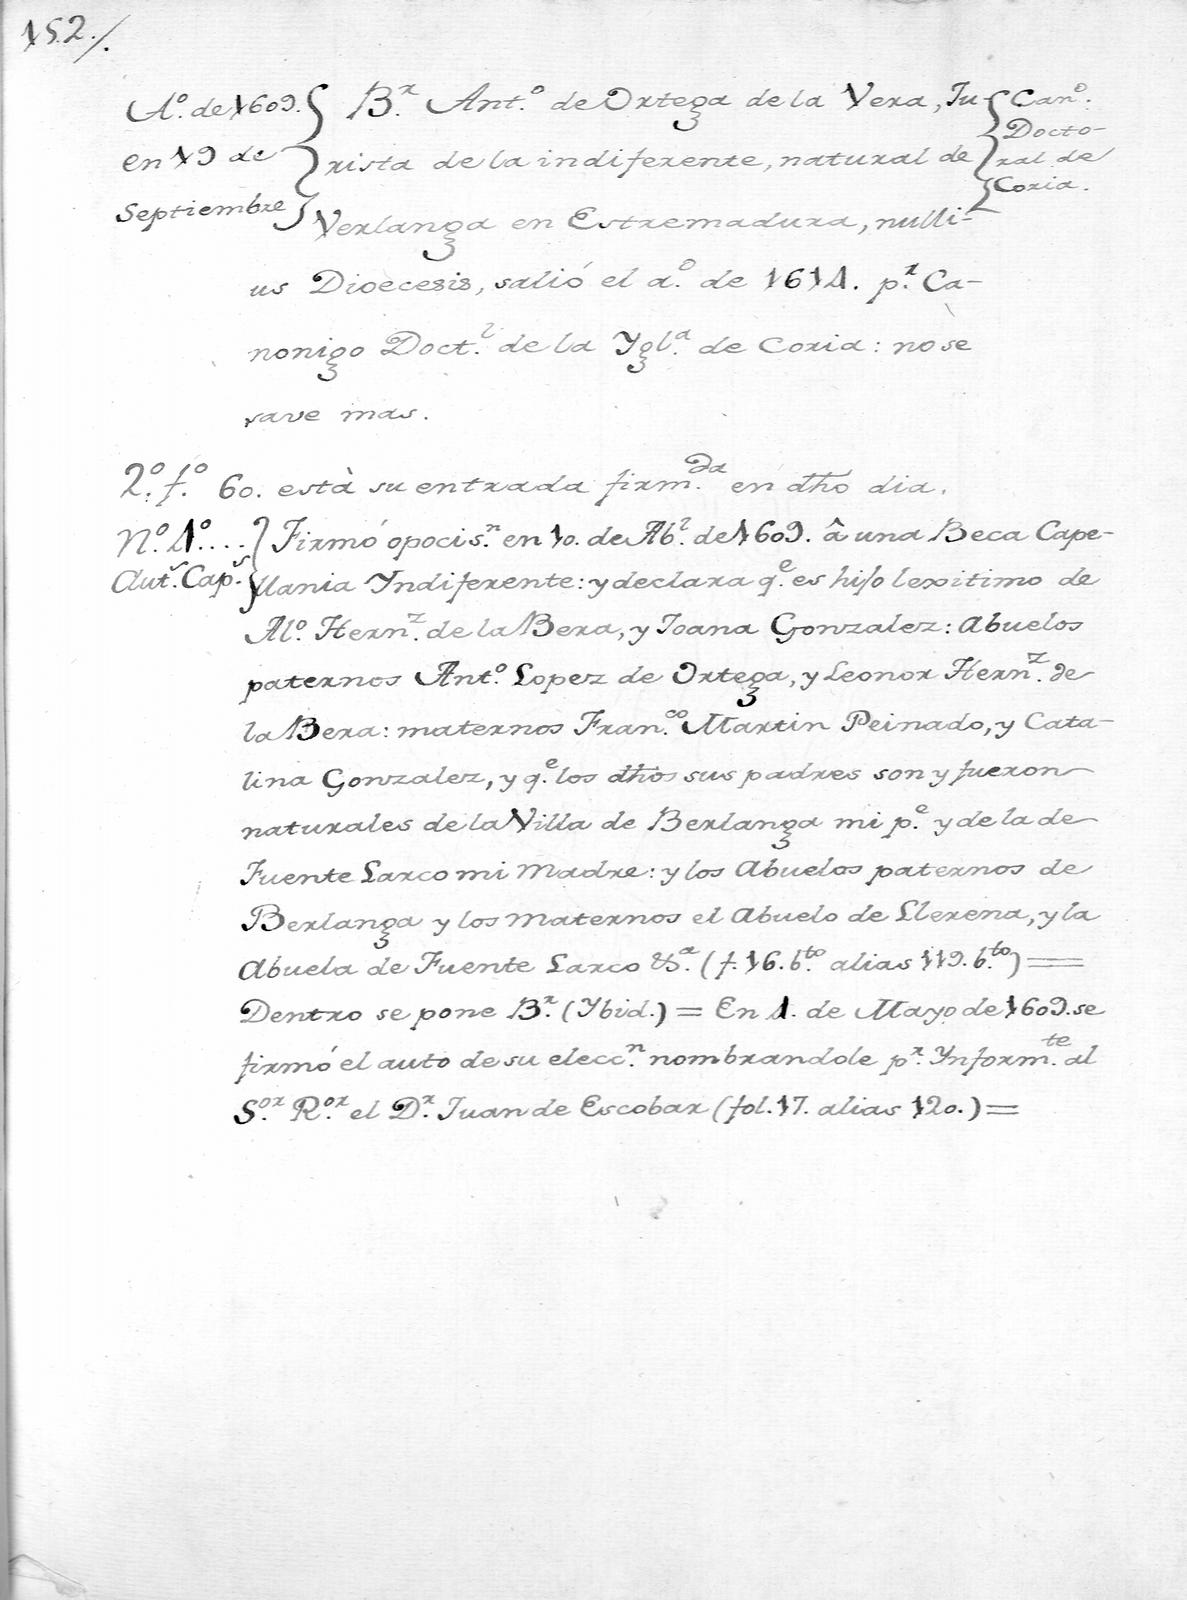 152./.
A.º de 1609. { B.r Ant.º de Ortega de la Vera, Ju { Can.º
en 19 de } rista de la indiferente, natural de } Docto-
Septiembre } Verlanga en Estremadura, nulli- { ral de Coria.
us Dioecesis, salió el a.º de 1614. p.r Ca-
nonigo Doct.l de la Ygl.a de Coria: no se
save mas.
2.º f.º 60. està su entrada firm.da en dho dia.
N.º 1.º.... } Firmó opocis.n en 10. de Ab.l de 1609. â una Beca Cape-
Aut.s Cap.s { llania Yndiferente: y declara q.e es hijo lexitimo de
Al.º Hern.z de la Bera, y Joana Gonzalez: Abuelos
paternos Ant.º Lopez de Ortega, y Leonor Hern.z de
la Bera: maternos Fran.co Martin Peinado, y Cata-
lina Gonzalez, y q.e los dhos sus padres son y fueron
naturales de la Villa de Berlanga mi p.e y de la de
Fuente Larco mi Madre: y los Abuelos paternos de
Berlanga y los Maternos el Abuelo de Llerena, y la
Abuela de Fuente Larco &.a (f. 16. b.to alias 119. b.to) =
Dentro se pone B.r (Ybid.) = En 1. de Mayo de 1609. se
firmó el auto de su elecc.n nombrandole p.r Ynform.te al
S.or R.or el D.r Juan de Escobar (fol. 17. alias 120.) =